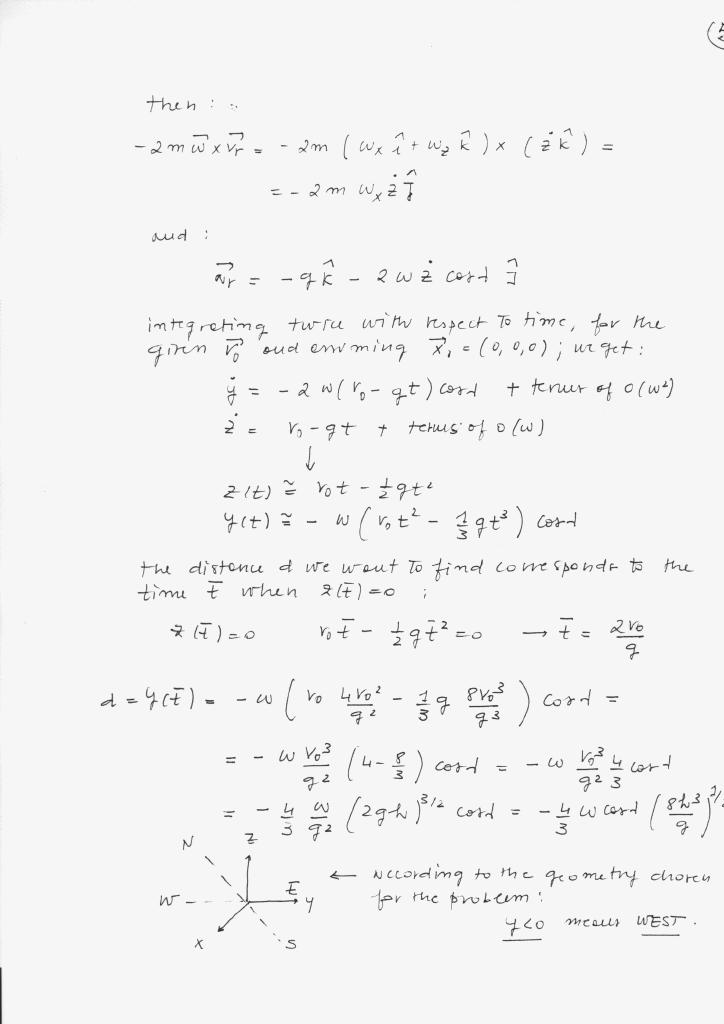 then :
- 2m ω⃗ x v⃗r = - 2m ( ωx î + ωz k̂ ) x ( ż k̂ ) =
= - 2 m ωx ż ĵ
and :
a⃗r = - g k̂ - 2 ω ż cosλ ĵ
integrating twice with respect to time, for the
given v⃗0 and assuming x⃗, = (0, 0, 0) ; we get :
ẏ = - 2 ω ( v0 - gt ) cosλ + terms of O(ω²)
ż = v0 - gt + terms of O(ω)
↓
z(t) ≅ v0t - 1/2 gt²
y(t) ≅ - ω ( v0t² - 1/3 gt³ ) cosλ
the distance d we want to find corresponds to the
time t̄ when z(t̄) = 0 ;
z(t̄) = 0 v0 t̄ - 1/2 g t̄² = 0 → t̄ = 2v0/g
d = y(t̄) = - ω ( v0 4v0²/g² - 1/3 g 8v0³/g³ ) cosλ =
= - ω v0³/g² ( 4 - 8/3 ) cosλ = - ω v0³/g² 4/3 cosλ
= - 4/3 ω/g² ( 2gh )^3/2 cosλ = - 4/3 ω cosλ ( 8h³/g )
N Z
← according to the geometry chosen
W E y for the problem :
y<0 means WEST .
x S